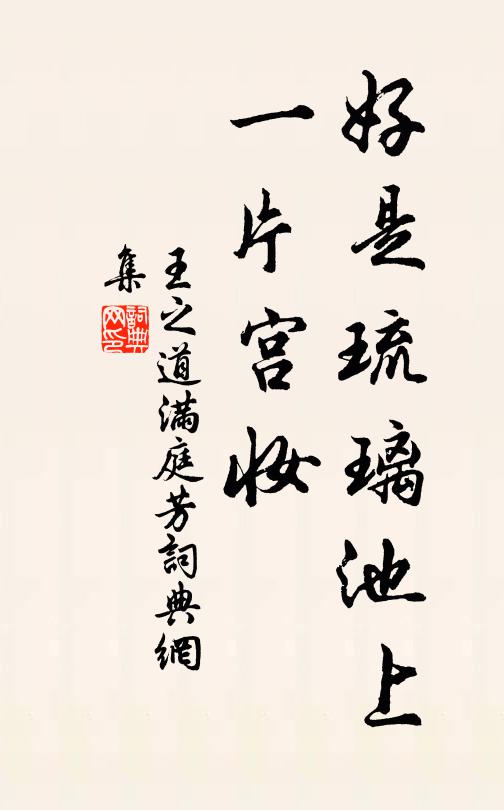 好是琉璃池上
一片宫妆
王之道满庭芳詞典網
集
詞典
网印